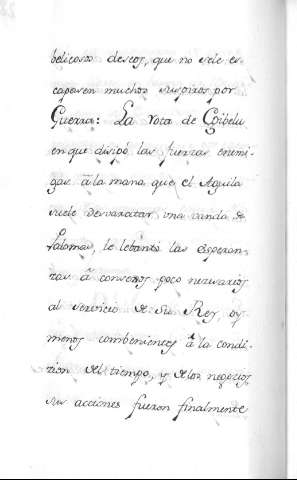 belicosos deseos, que no sele es-
capasen muchos suspiros por
Guerra: La rota de Cibelu
en que disipó las fuerzas enemi-
gas à la mano, que el Aguila
suele desvaratar una vanda de
Palomas, le lebantó las esperan-
zas â consejos poco nezesarios
al servicio de su Rey, oy
menos combenientes â la condi-
cion del tiempo, y delos negocios,
sus acciones fueron finalmente